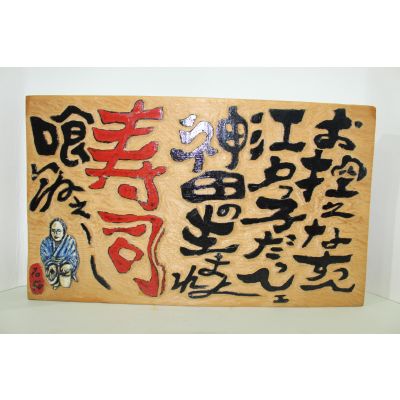 お控えなすって
江戸っ子だってェ
神田の生まれよ
寿司
喰いねェ